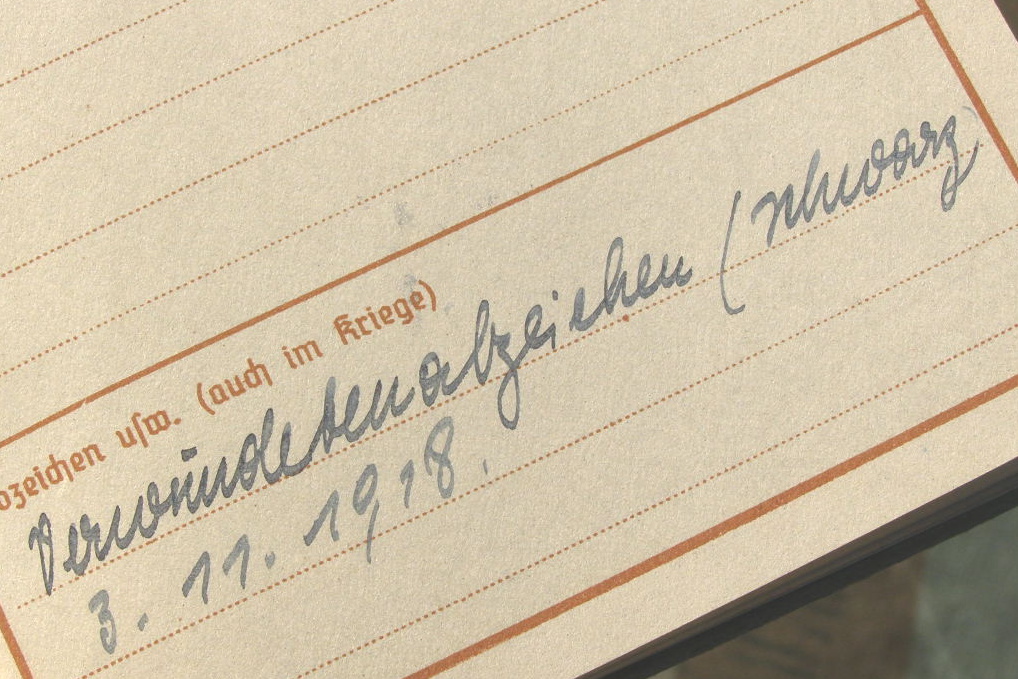 bzeichen usw. (auch im Kriege)
Verwundetenabzeichen (schwarz)
3. 11. 1918.